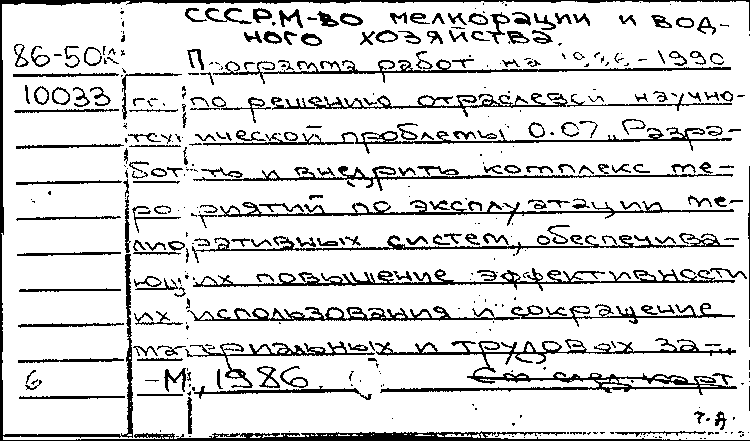 СССР. М-во мелиорации и вод-
ного хозяйства.
86-50к Программа работ на 1986-1990
10033 гг. по решению отраслевой научно-
технической проблемы 0.07 „Разра-
ботать и внедрить комплекс ме-
роприятий по эксплуатации ме-
лиоративных систем, обеспечива-
ющих повышение эффективности
их использования и сокращение
материальных и трудовых за-
6 -М., 1986. См след. карт
т.д.